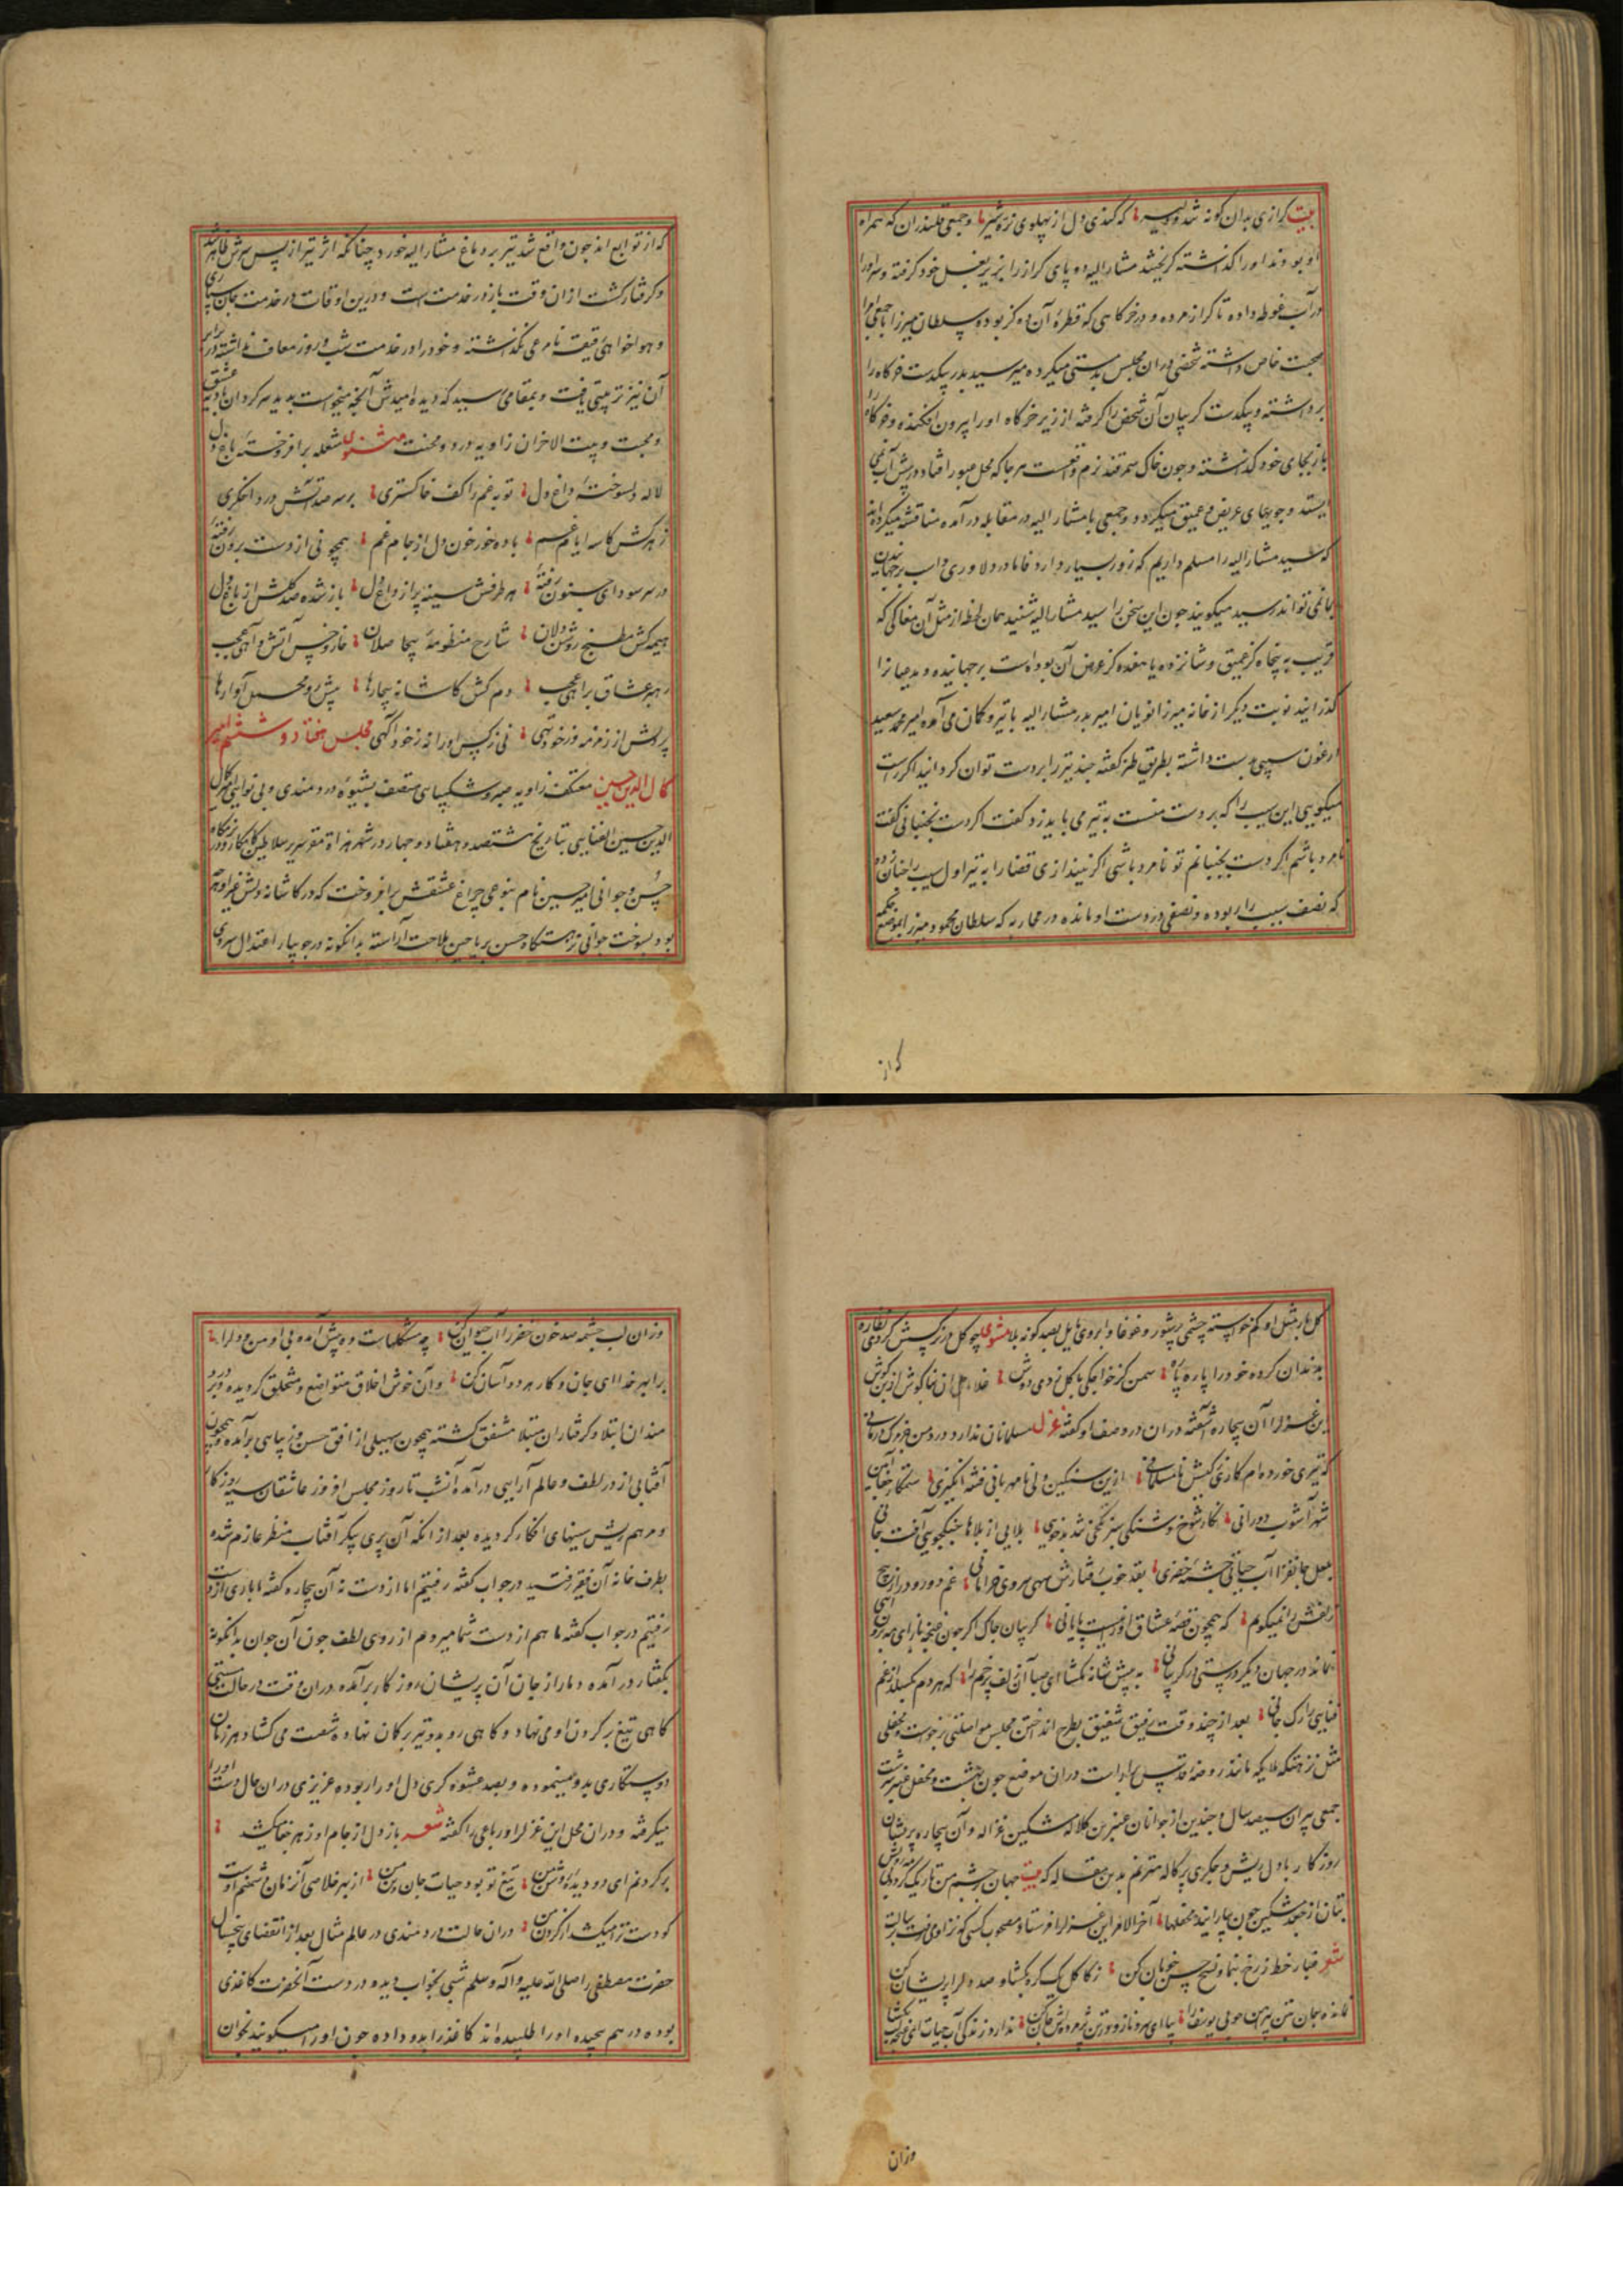 بیت کرازی بدان کونه شد و دلیر که کندی دل از پهلوی نره شیر و جمعی قلندران که همراه
او بودند او را کذاشته کریختند مشار الیه دو پای کراز را بزیر بغل خود کرفته و سر او را
در آب غوطه داده تا کراز مرده و در خرکاهی که قطره آن ده کز بوده سلطان میرزا با جمعی امرا
صحبت خاص داشته شخصی در ان مجلس بدمستی میکرده میر سید بدر بیکدست خرکاه را
برداشته و بیکدست کریبان آن شخص را کرفته از زیر خرکاه او را بیرون افکنده و خرکاه را
باز بجای خود کذاشته و چون خاک سمرقند نرم واقعست هر جا که محل عبور افتاد در پیش آب نمی
ایستد و جویهای عریض و عمیق میکردد و جمعی با مشار الیه در مقابله در آمده مناقشه میکرده اند
که سید مشار الیه را مسلم داریم که زور بسیار دارد فاما در دلاوری و اسب برجهانیدن
بما نمی تواند رسید میکویند چون این سخن را سید مشار الیه شنید همان لحظه از مثل آن مغاکی که
قریب به پنجاه کز عمیق و شانزده یا هفده کز عرض آن بود است برجهانیده و مدعیانرا
کذرانید نوبت دیکر از خانه میرزا نویان امیر بدر مشار الیه با تیر و کمان می آمده امیر محمد سعید
ارغون سیبی بدست داشته بطریق طنز کفته چند تیر را بر دست توان کردانید اکر راست
میکویی این سیب را که بر دست منست به تیر می باید زد کفت اکر دست نجنبانی کفت
نامرد باشم اکر دست بجنبانم تو نامرد باشی اکر نیندازی قضا را به تیر اول سیب را چنان زده
که نصف سیب را ربوده و نصفی در دست او مانده در محاربه که سلطان محمود میرزا
کراز
که از توابع اندجون واقع شد تیر بر دماغ مشار الیه خورد چنانکه اثر تیر از پس سرش ظاهر شد
و کرفتار کشت از ان وقت باز در خدمت است و درین اوقات در خدمت جان سپاری
و هواخواهی دقیقه نامرعی نکذاشته و خود را در خدمت شب و روز معاف نداشته در
آن نیز تربیتی یافت و بمقامی رسید که دیده امیدش آنچه میخواست بدید سر کردان بادیه عشق
و محبت و بیت الاحزان زاویه درد و محنت مثنوی شعله برافروخته باغ دل
لاله دلسوخته داغ دل توبه غم را کف خاکستری بر سر صد آتش درد اخکری
زهر کش کاسه ایام غم باده خور خون دل از جام غم همچو نی از دست برون رفته
در سر سودای ستون رفته هر طرفش سینه پر از داغ دل باز شده صد کلش از باغ دل
هیمه کش مطبخ روشن دلان شارح منظومه بیحاصلان خار و خس آتش و آهی عجب
رهبر عشاق براهی عجب دم کش کاشانه بیچارها پیش رو محمل آوارها
پر دلش از زمزمه وز خود تهی نی ز کس او را نه ز خود آکهی مجلس هفتاد و ششم امیر
کمال الدین حسین معتکف زاویه صبر و شکیبایی متصف بشیوه دردمندی و بی نوایی کمال
الدین حسین الفنایی بتاریخ هشتصد و هشتاد و چهار در شهر هراة مقر سریر سلاطین کامکار
حسن و جوانی امیر حسین نام بنوعی چراغ عشقش برافروخت که در کاشانه دلش غیر او هر چه
بود بسوخت جوانی نزهتکاه حسن بریاحین ملاحت آراسته بدانکونه در جویبار اعتدال سروی
کل بار مثل او کم خواسته چشمی پر شور و غوغا و ابروی مایل بصد کونه بلا مثنوی چو کل در نرکسش کردی نظاره
بدندان کرده خود را پاره پاره سمن کز خواجکی با کل زدی دوش غلام آن بناکوش از بن کوش
این غزل را آن بیچاره آشفته در ان در وصف او کفته غزل مسلمانان ندارد درد من درمانی
که تیری خورده ام کاری ز کیش نامسلمانی ازین سنکین دلی نامهربانی فتنه انکیزی ستمکار
شهر آشوب دورانی نکار شوخ و شنکی سبز تلخی تند بدخویی بلایی از بلاها جنکجویی آفت جانی
بلعل جانفزا آب حیاتی چشمه خضری بقد خوب و رفتارش سهی سروی خرامانی غم دور و دراز پیچ
زلفش را نمیکویم که همچون قصه عشاق او را نیست پایانی کریبان چاک اکر چون غنچه
نماند در جهان دیکر درستی در کریبانی به پیش شانه بکشا ای صبا آن زلف پر خم را که هر دم بکسلد از غم
فنایی را رک جانی بعد از چند وقت رفیق شفیق بطرح انداختن مجلس مواصلتی برخواست و محفلی
مثل نزهتکه ملایکه مانند روضه قدس بیاراست در ان موضع چون بهشت و محفل عنبر سرشت
جمعی پیران سیصد سال و چندین از جوانان عنبرین کلاله مشکین غزاله و آن بیچاره پریشان
روزکار با دل ریش و جکری پر کاله مترنم بدین مقاله که بیت جهان در چشم من تاریک کردی
بتان از جعد مشکین چون بیارایند محفلها آخر الامر این غزل را فرستاد مصحوب کسی که نزد او می رفت برسالت
شعر غبار خط ز رخ بنما و نسخ حسن خوبان کن ز کاکل یک کره بکشا و صد دل را پریشان کن
نمانده جان بتن پیراهن چو بی یوسف را بیا ای سرو ناز و در تن پژمرده اش جان کن ندارد زندکی آب حیات
وزان
وزان لب چشمه صد خون خضر را آب حیوان کن چه مشکلهاست ده پیش آمده بی او من و دل را
برابر خدا ای جان و کار هر دو آسان کن و آن خوش اخلاق متواضع و متخلق کردیده و بر درد
مندان ابتلا و کرفتاران مبتلا مشفق کشته همچون سهیلی از افق حسن و زیبایی برآمده و همچون
آفتابی از در لطف و عالم آرایی درآمده آنشب تا روز مجلس افروز عاشقان سیه روزکار
و مرهم ریش سینهای افکار کردیده بعد از انکه آن پری پیکر آفتاب منظر عازم شده
بطرف خانه آن فقیر رفتید در جواب کفته رفتیم اما از دست نه آن بیچاره کفته ما باری از دست
رفتیم در جواب کفته ما هم از دست شما میرویم از روی لطف چون آن جوان بدانکونه
بکفتار در آمده دمار از جان آن پریشان روزکار برآمده در ان وقت در حالت مستی
کاهی تیغ بر کردن او می نهاد و کاهی رو بدو تیر بر کمان نهاده شست می کشاد هر زمان
دوستکاری بدو مینموده و بصد عشوه کری دل او را ربوده عزیزی در ان حال دست او را
میکرفته و در ان محل این غزل را و رباعی را کفته شعر باز دل از جام او زهر جفا میکشد
بر کردنم ای دو دیده روشن من تیغ تو بود حیات جان و تن من از بهر خلاصی آنزمان دشمنم اوست
کو دست ترا میکشد از کردن من در ان حالت دردمندی در عالم مثال بعد از انقضای پنجسال
حضرت مصطفی را صلی الله علیه و آله و سلم شبی بخواب دیده در دست آنحضرت کاغذی
بوده در هم پیچیده او را طلبیده اند کاغذ را بدو داده چون او را میکویند بخوان